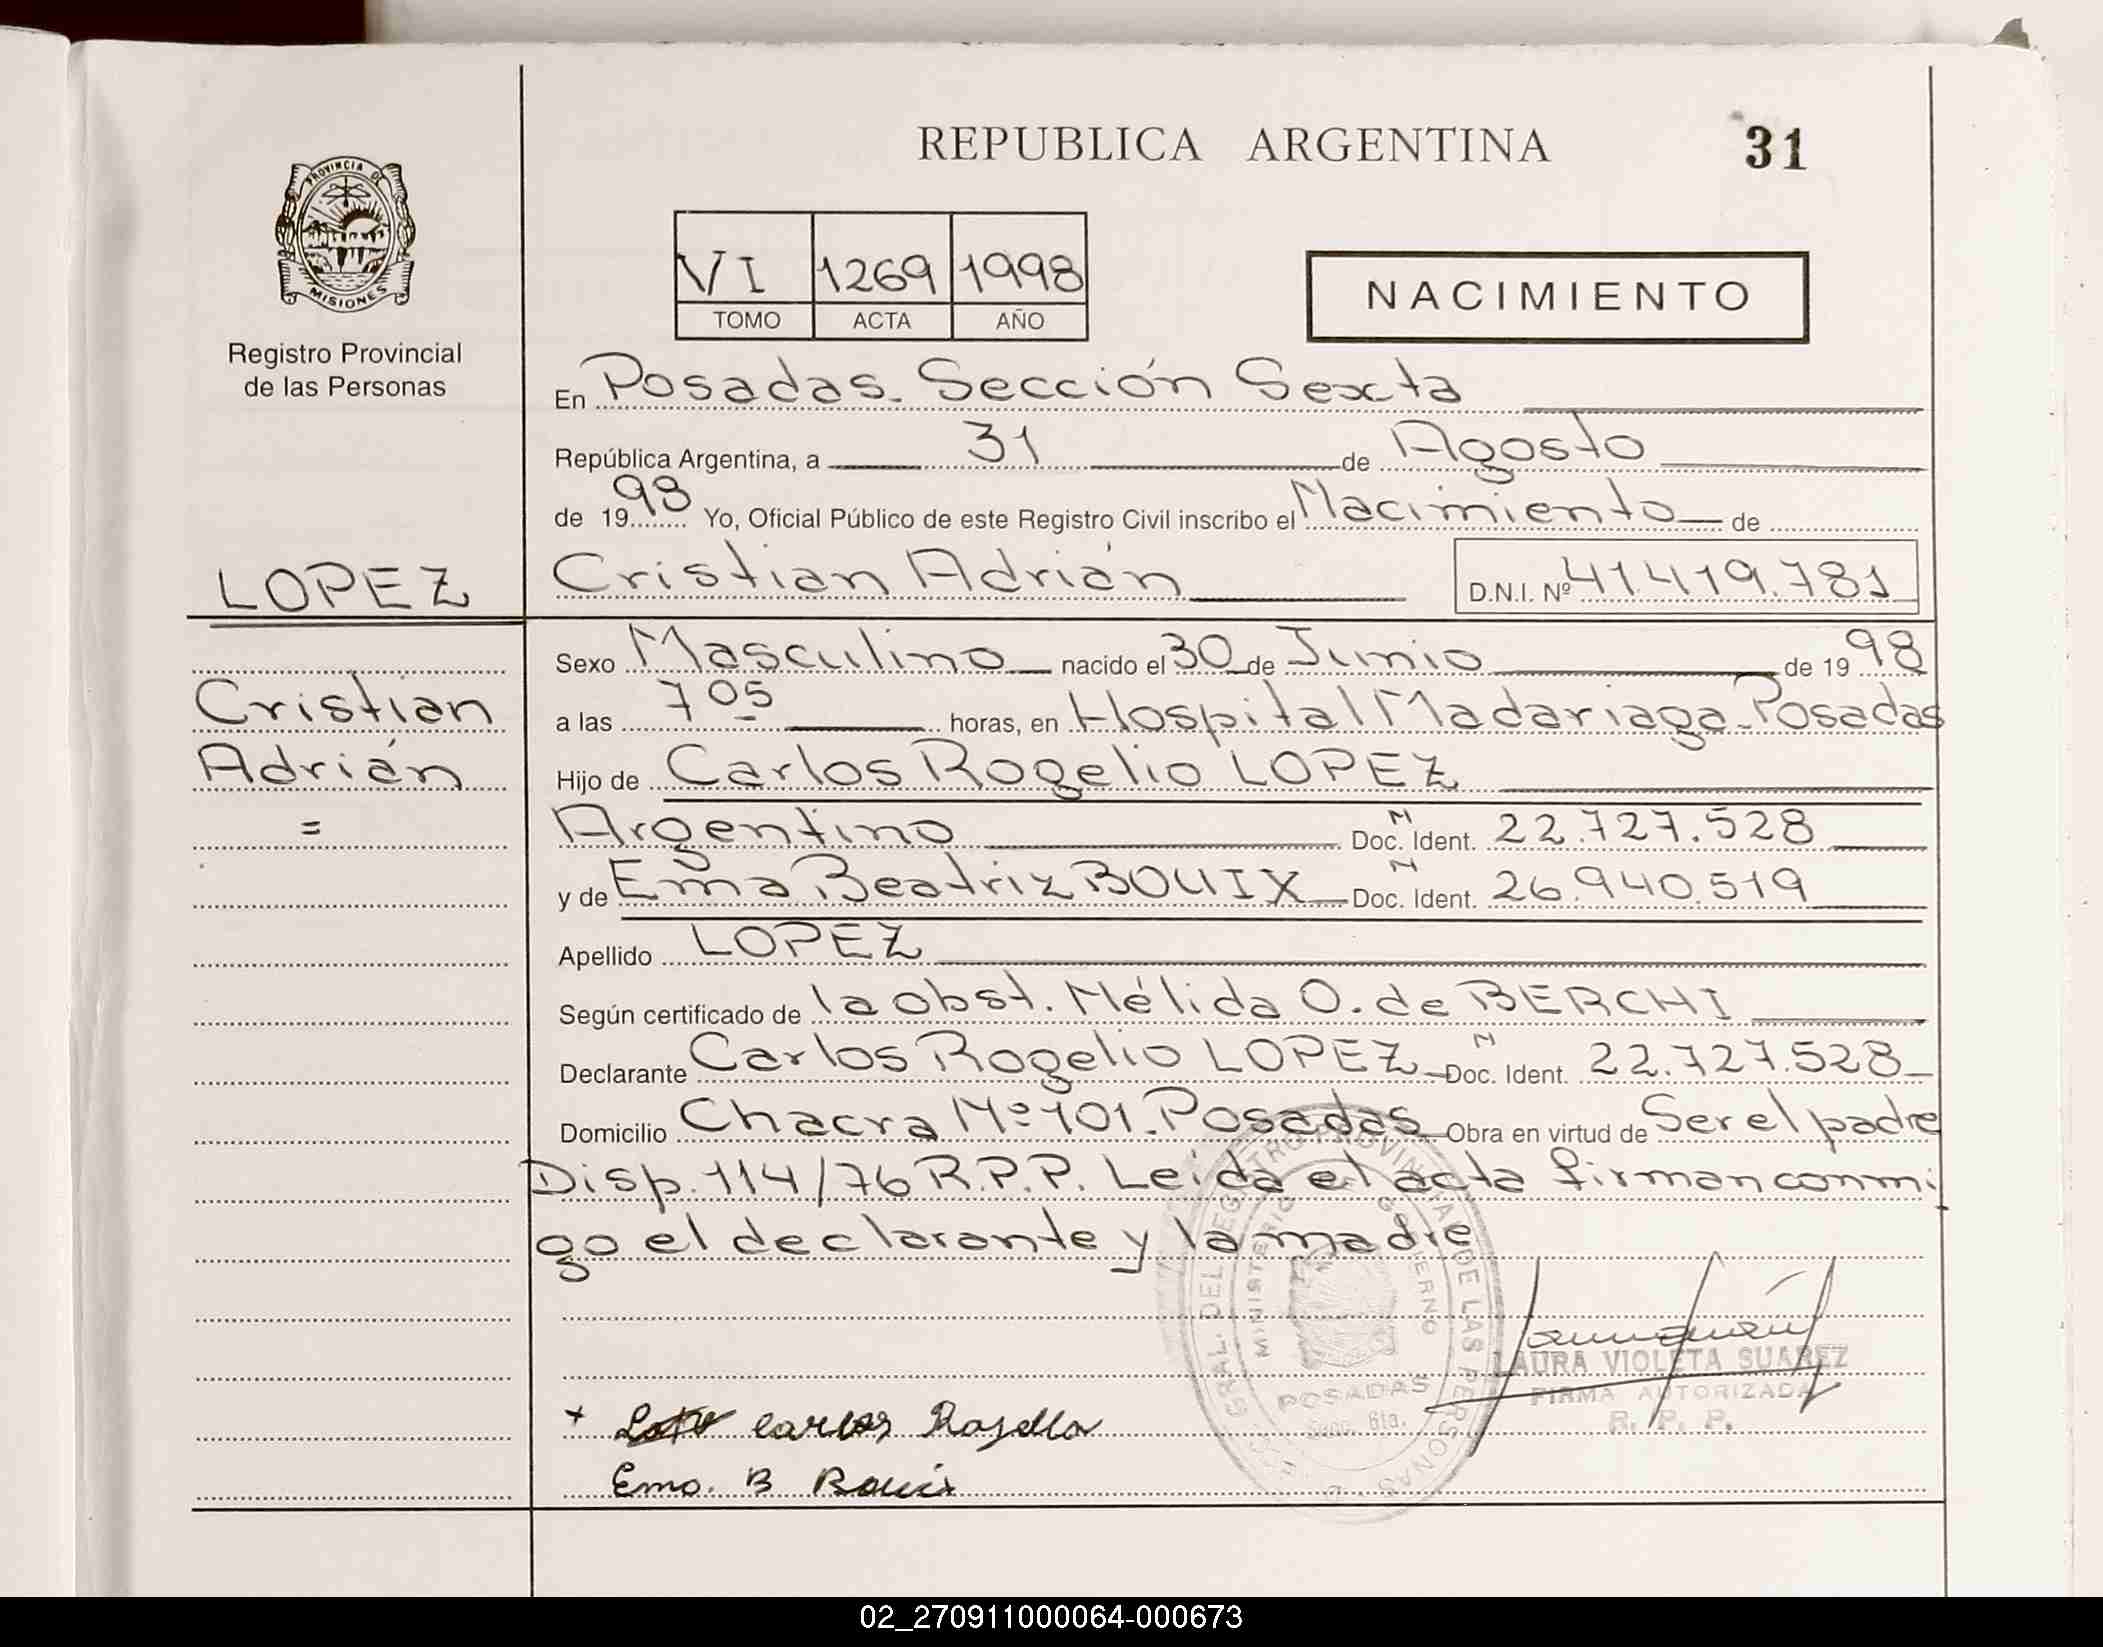 REPUBLICA ARGENTINA
31
PROVINCIA DE
MISIONES
Registro Provincial
de las Personas
VI 1269 1998
TOMO ACTA AÑO
NACIMIENTO
En Posadas. Sección Sexta
República Argentina, a 31 de Agosto
de 1998 Yo, Oficial Público de este Registro Civil inscribo el Nacimiento de
Cristian Adrián D.N.I. Nº 41.419.781
LOPEZ
Cristian
Adrián
=
Sexo Masculino nacido el 30 de Junio de 1998
a las 7 05 horas, en Hospital Madariaga - Posadas
Hijo de Carlos Rogelio LOPEZ
Argentino Doc. N Ident. 22.727.528
y de Ema Beatriz BOUIX Doc. N Ident. 26.940.519
Apellido LOPEZ
Según certificado de la obst. Nélida O. de BERCHI
Declarante Carlos Rogelio LOPEZ Doc. N Ident. 22.727.528
Domicilio Chacra Nº 101. Posadas Obra en virtud de Ser el padre
Disp. 114/76 R.P.P. Leída el acta firman conmi
go el declarante y la madre
GRAL. DEL REGISTRO PROVINCIAL DE LAS PERSONAS
MINISTERIO GOBIERNO
POSADAS
Secc. 6ta.
LAURA VIOLETA SUAREZ
FIRMA AUTORIZADA
R. P. P.
+ Carlos
Ema. B Bouix
02_270911000064-000673